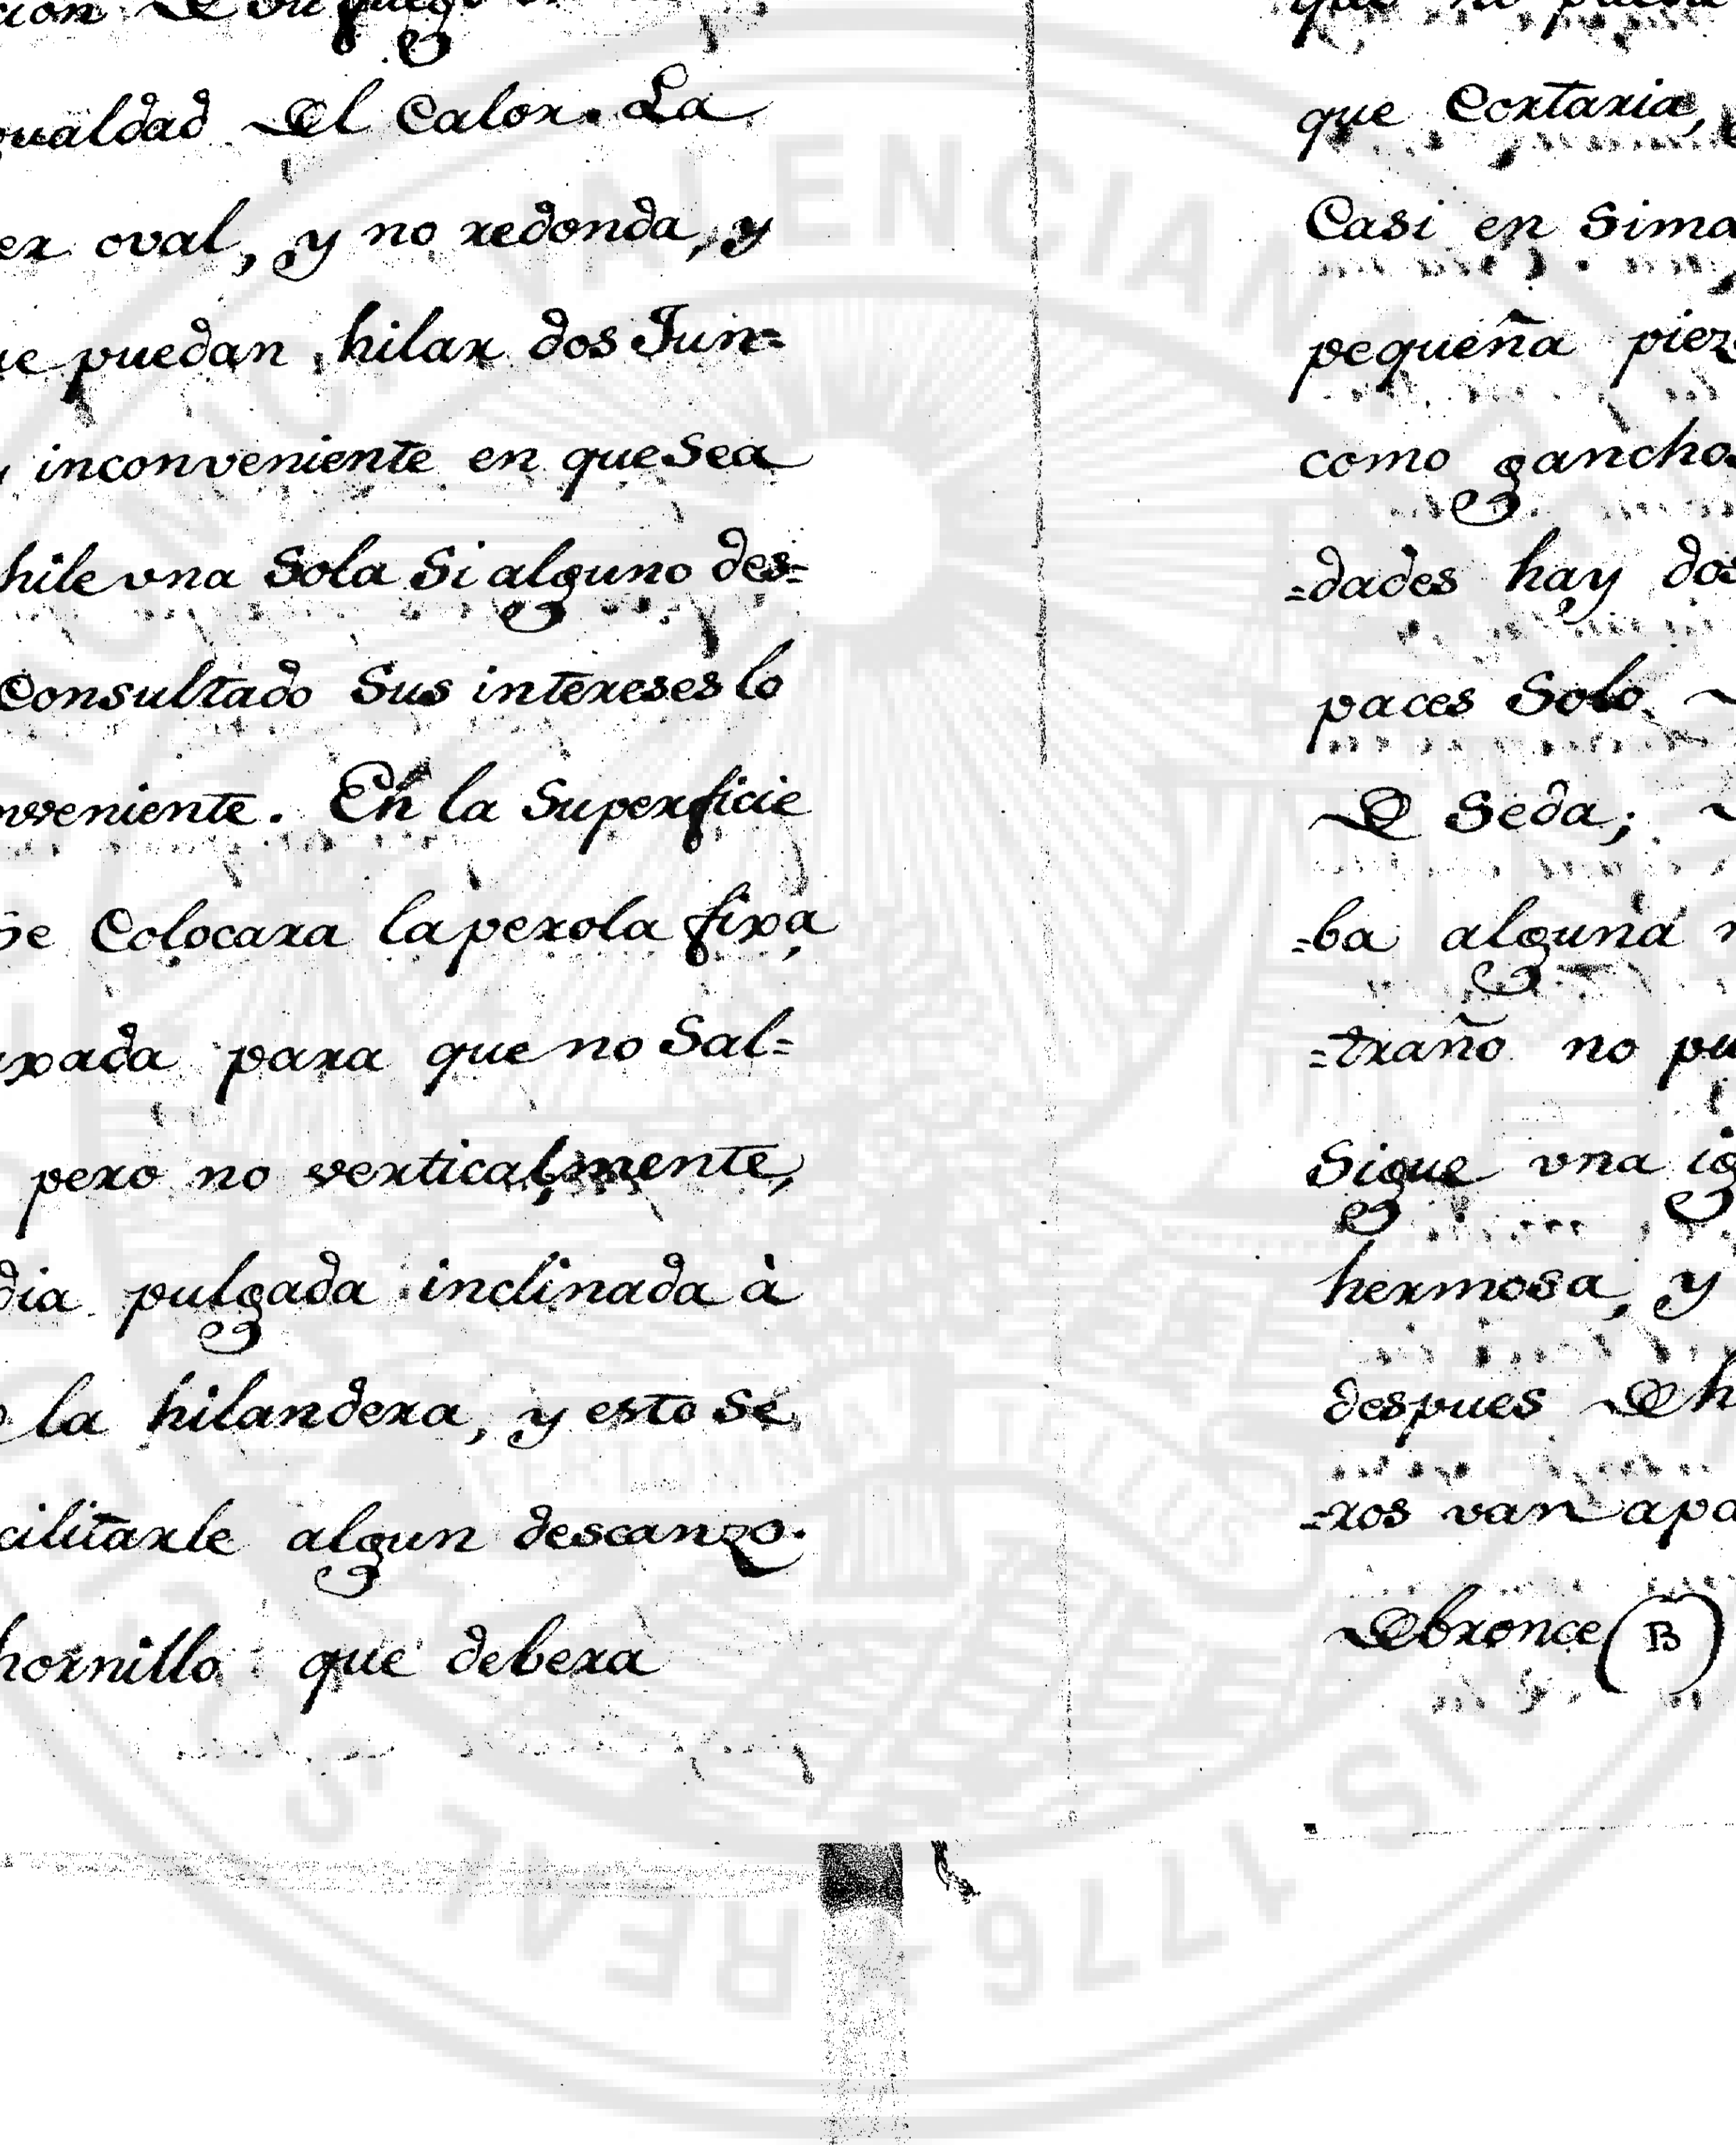 qualdad del Calor. La
er oval, y no redonda, y
ue puedan hilar dos Jun=
inconveniente en que Sea
hile vna Sola Si alguno des=
Consultado Sus intereses lo
nveniente. En la Superficie
Se Colocara la perola fixa
para que no Sal=
pero no verticalmente,
dia pulgada inclinada à
la hilandera, y esto se
cilitarle algun descanzo.
hornillo que debera
que Cortaria,
Casi en Sima
pequeña piez
como gancho
=dades hay dos
paces Solo
De Seda;
=ba alguna
=traño no pu
Sigue vna ig
hermosa, y
despues de h
=ros van apa
de bronce (B)
VALENCIAN
REAL S
1776